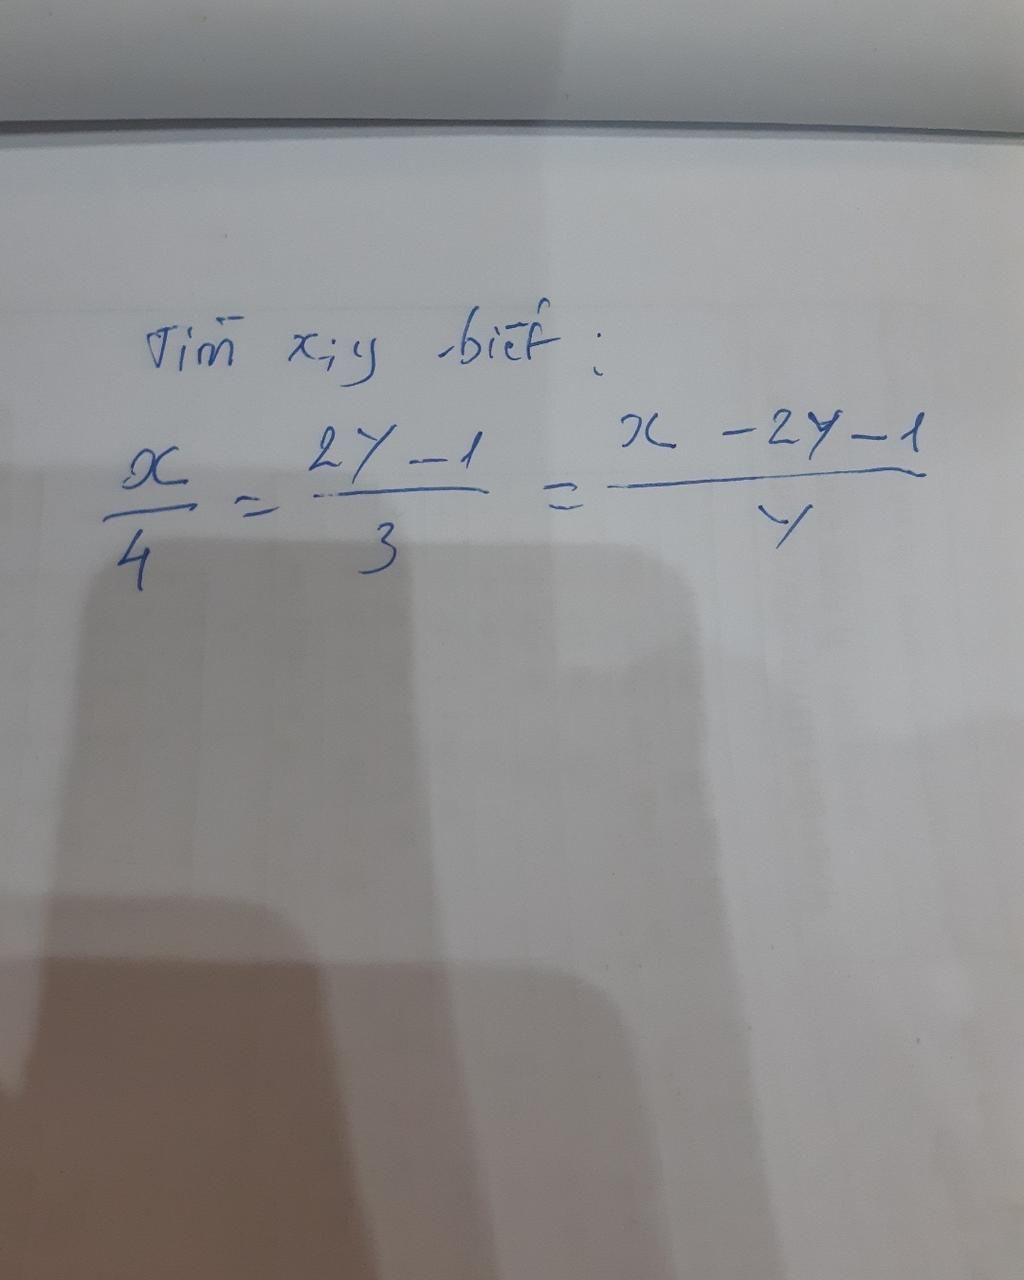 Tìm x; y biết :
x/4 = 2y - 1/3 = x - 2y - 1/y